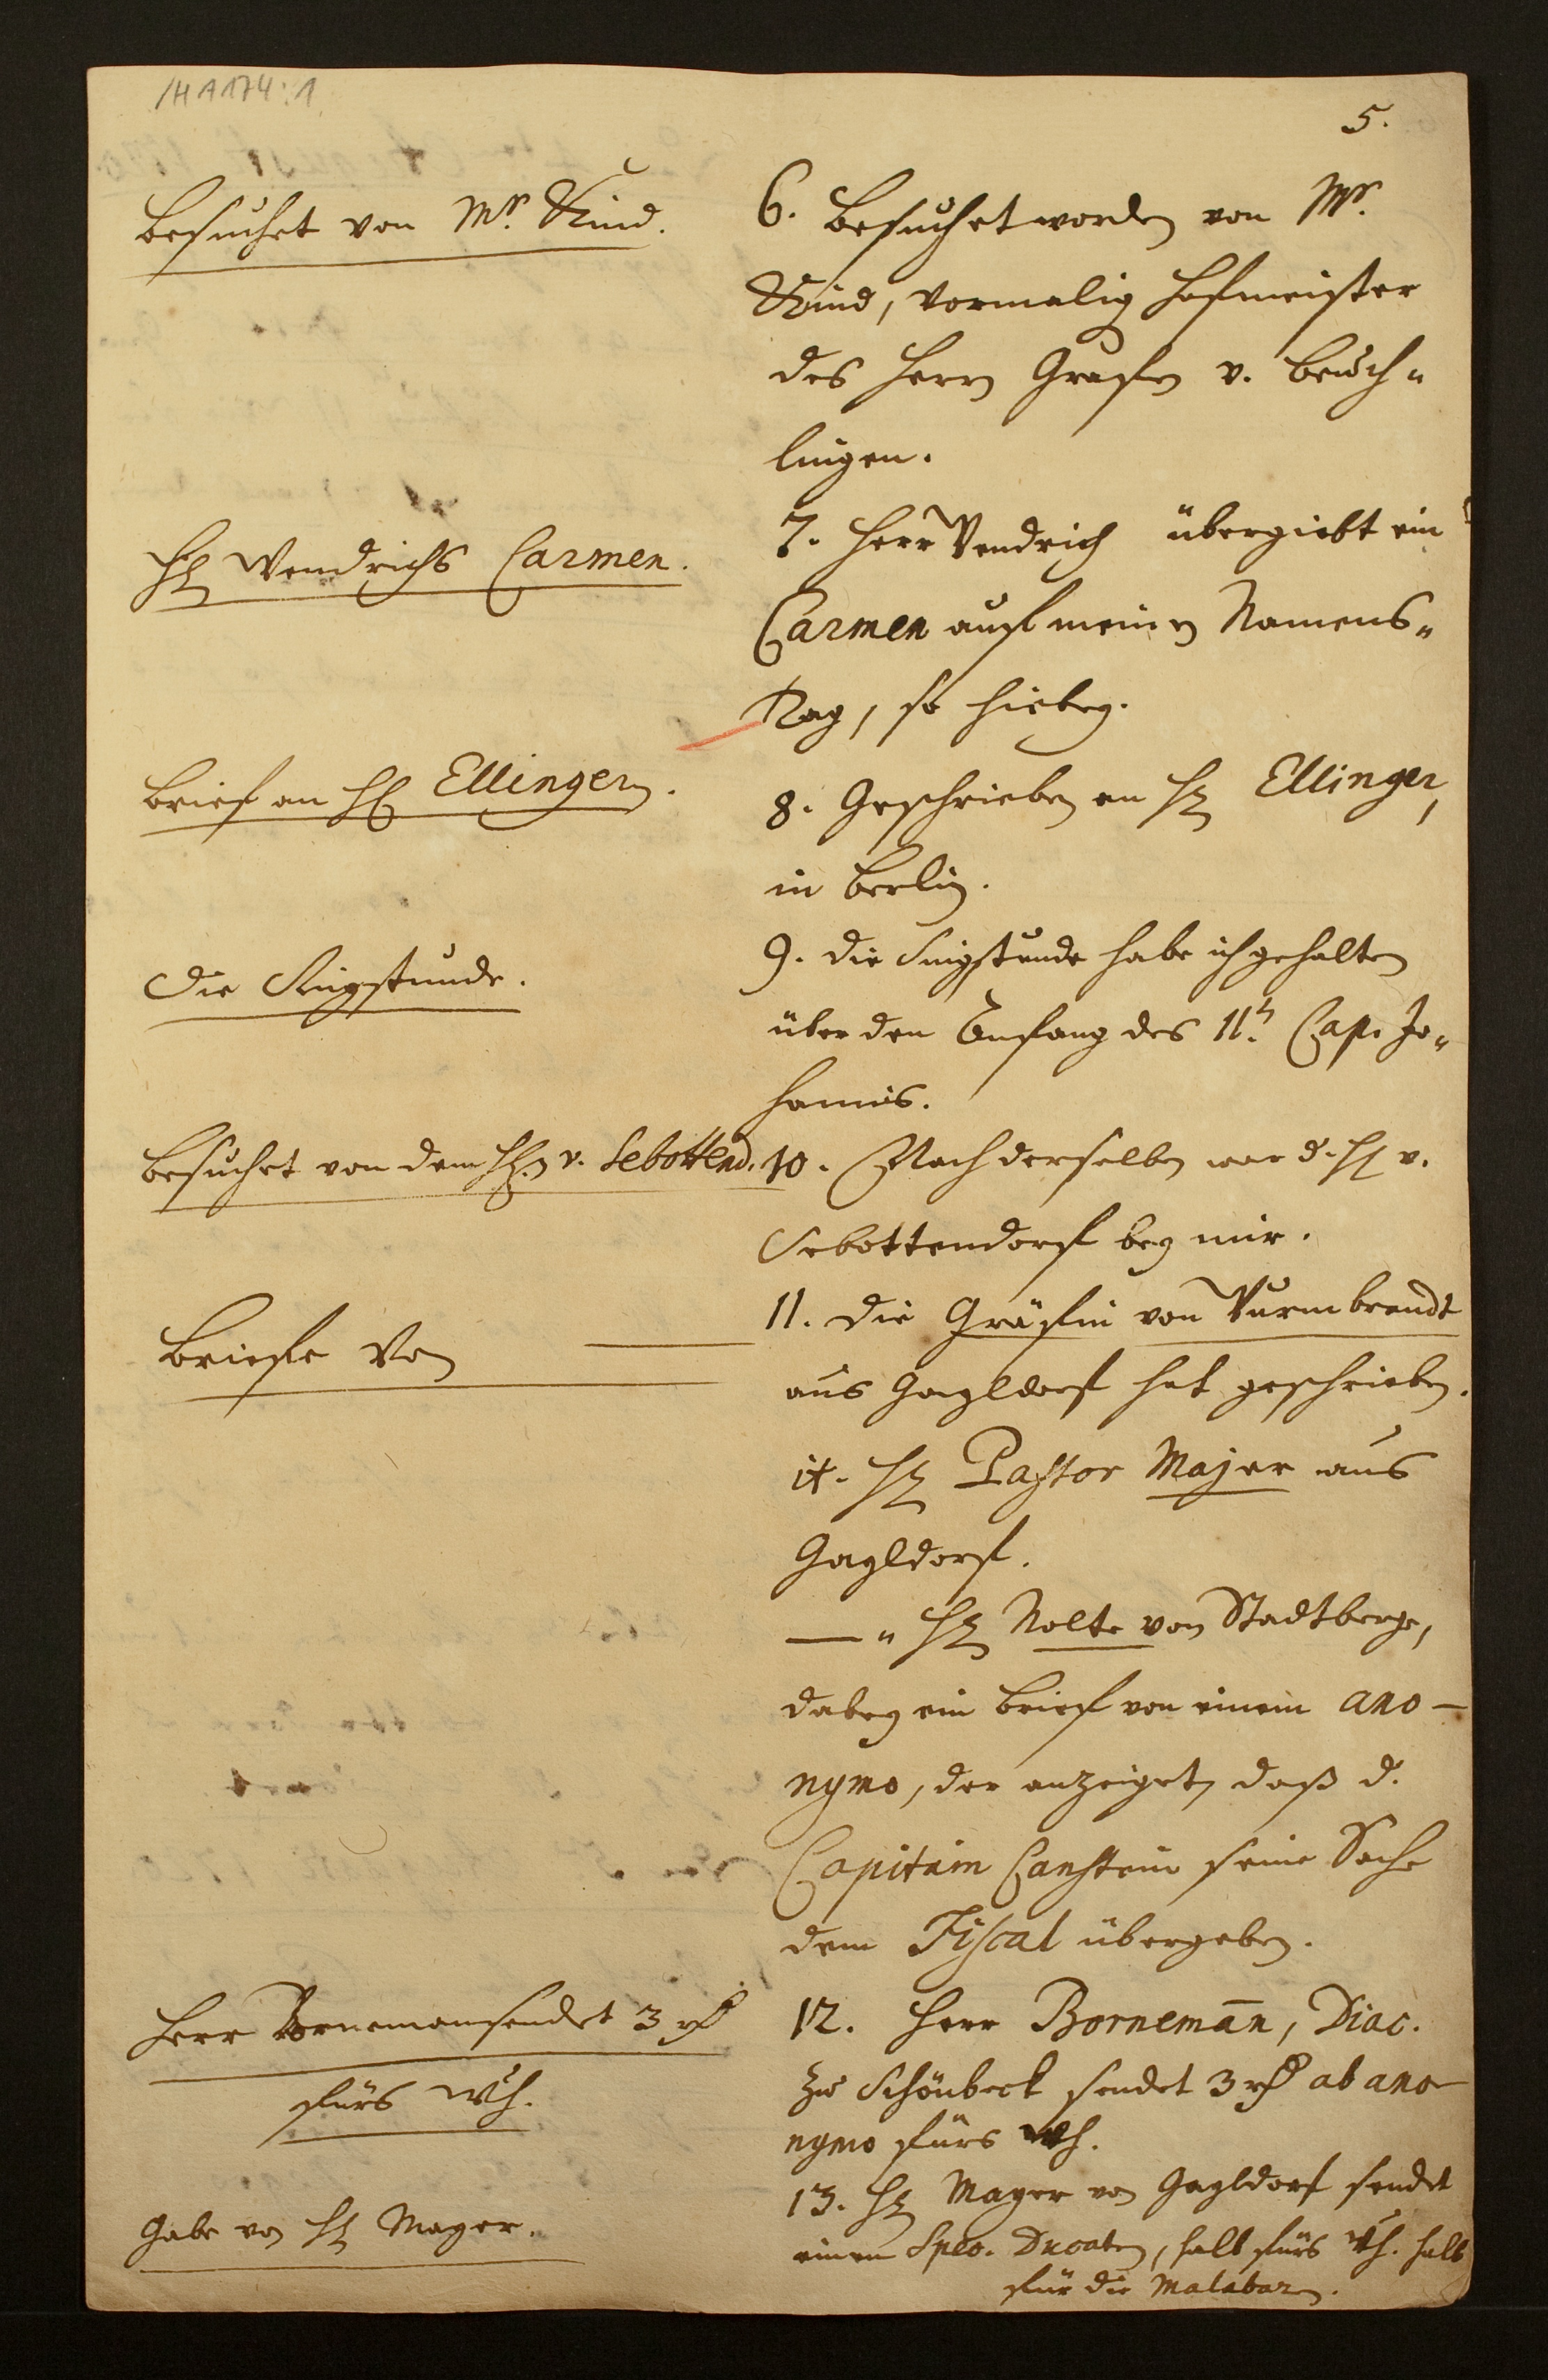 /H A 174 : 1
5.
Besuchet von Mr. Kind.
6. Besuchet worden von Mr.
Kind, vormalig Hofmeister
des Herrn Grafen v. Beuch-
lingen.
H. Wendrichs Carmen.
7. Herr Wendrich übergiebt ein
Carmen auf meinen Namens-
Tag, so hiebey.
Brief an H. Ellingern.
8. Geschrieben an H. Ellinger,
in Berlin.
Die Singstunde.
9. die Singstunde habe ich gehalten
über den Anfang des 11t. Cap. Jo-
hannis.
Besuchet von dem Hn. v. Sebottend.
10. Nach derselben war d. H. v.
Sebottendorf bey mir.
Briefe von
11. die Gräfin von Wurmbrandt
aus Gagldorf hat geschrieben.
it. H. Pastor Majer aus
Gagldorf.
— " H. Nolte von Stadtberge,
dabey ein Brief von einem ano-
nymo, der anzeiget, daß d.
Capitain Canstein seine Sache
dem Fiscal übergeben.
Herr Borneman sendet 3 rth
fürs Wh.
12. Herr Bornema͞n, Diac.
zu Schönbeck sendet 3 rth ab ano-
nymo fürs Wh.
Gabe von H. Mayer.
13. H. Mayer von Gagldorf sendet
einen Spec. Ducaten, halb fürs Wh. halb
für die Malabaren.